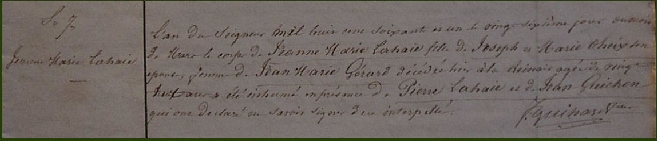 So 7
Jeanne Marie Lahaie
L'an du Seigneur mil huit cent soixante et un le vingt septième jour du mois
de Mars le corps de Jeanne Marie Lahaie fille de Joseph et Marie
épouse, femme de Jean Marie Gérard décédée hier à la agée de vingt
huit ans a été inhumé en présence de Pierre Lahaie et de Jean Guichon
qui ont déclaré ne savoir signer de ce interpellé.